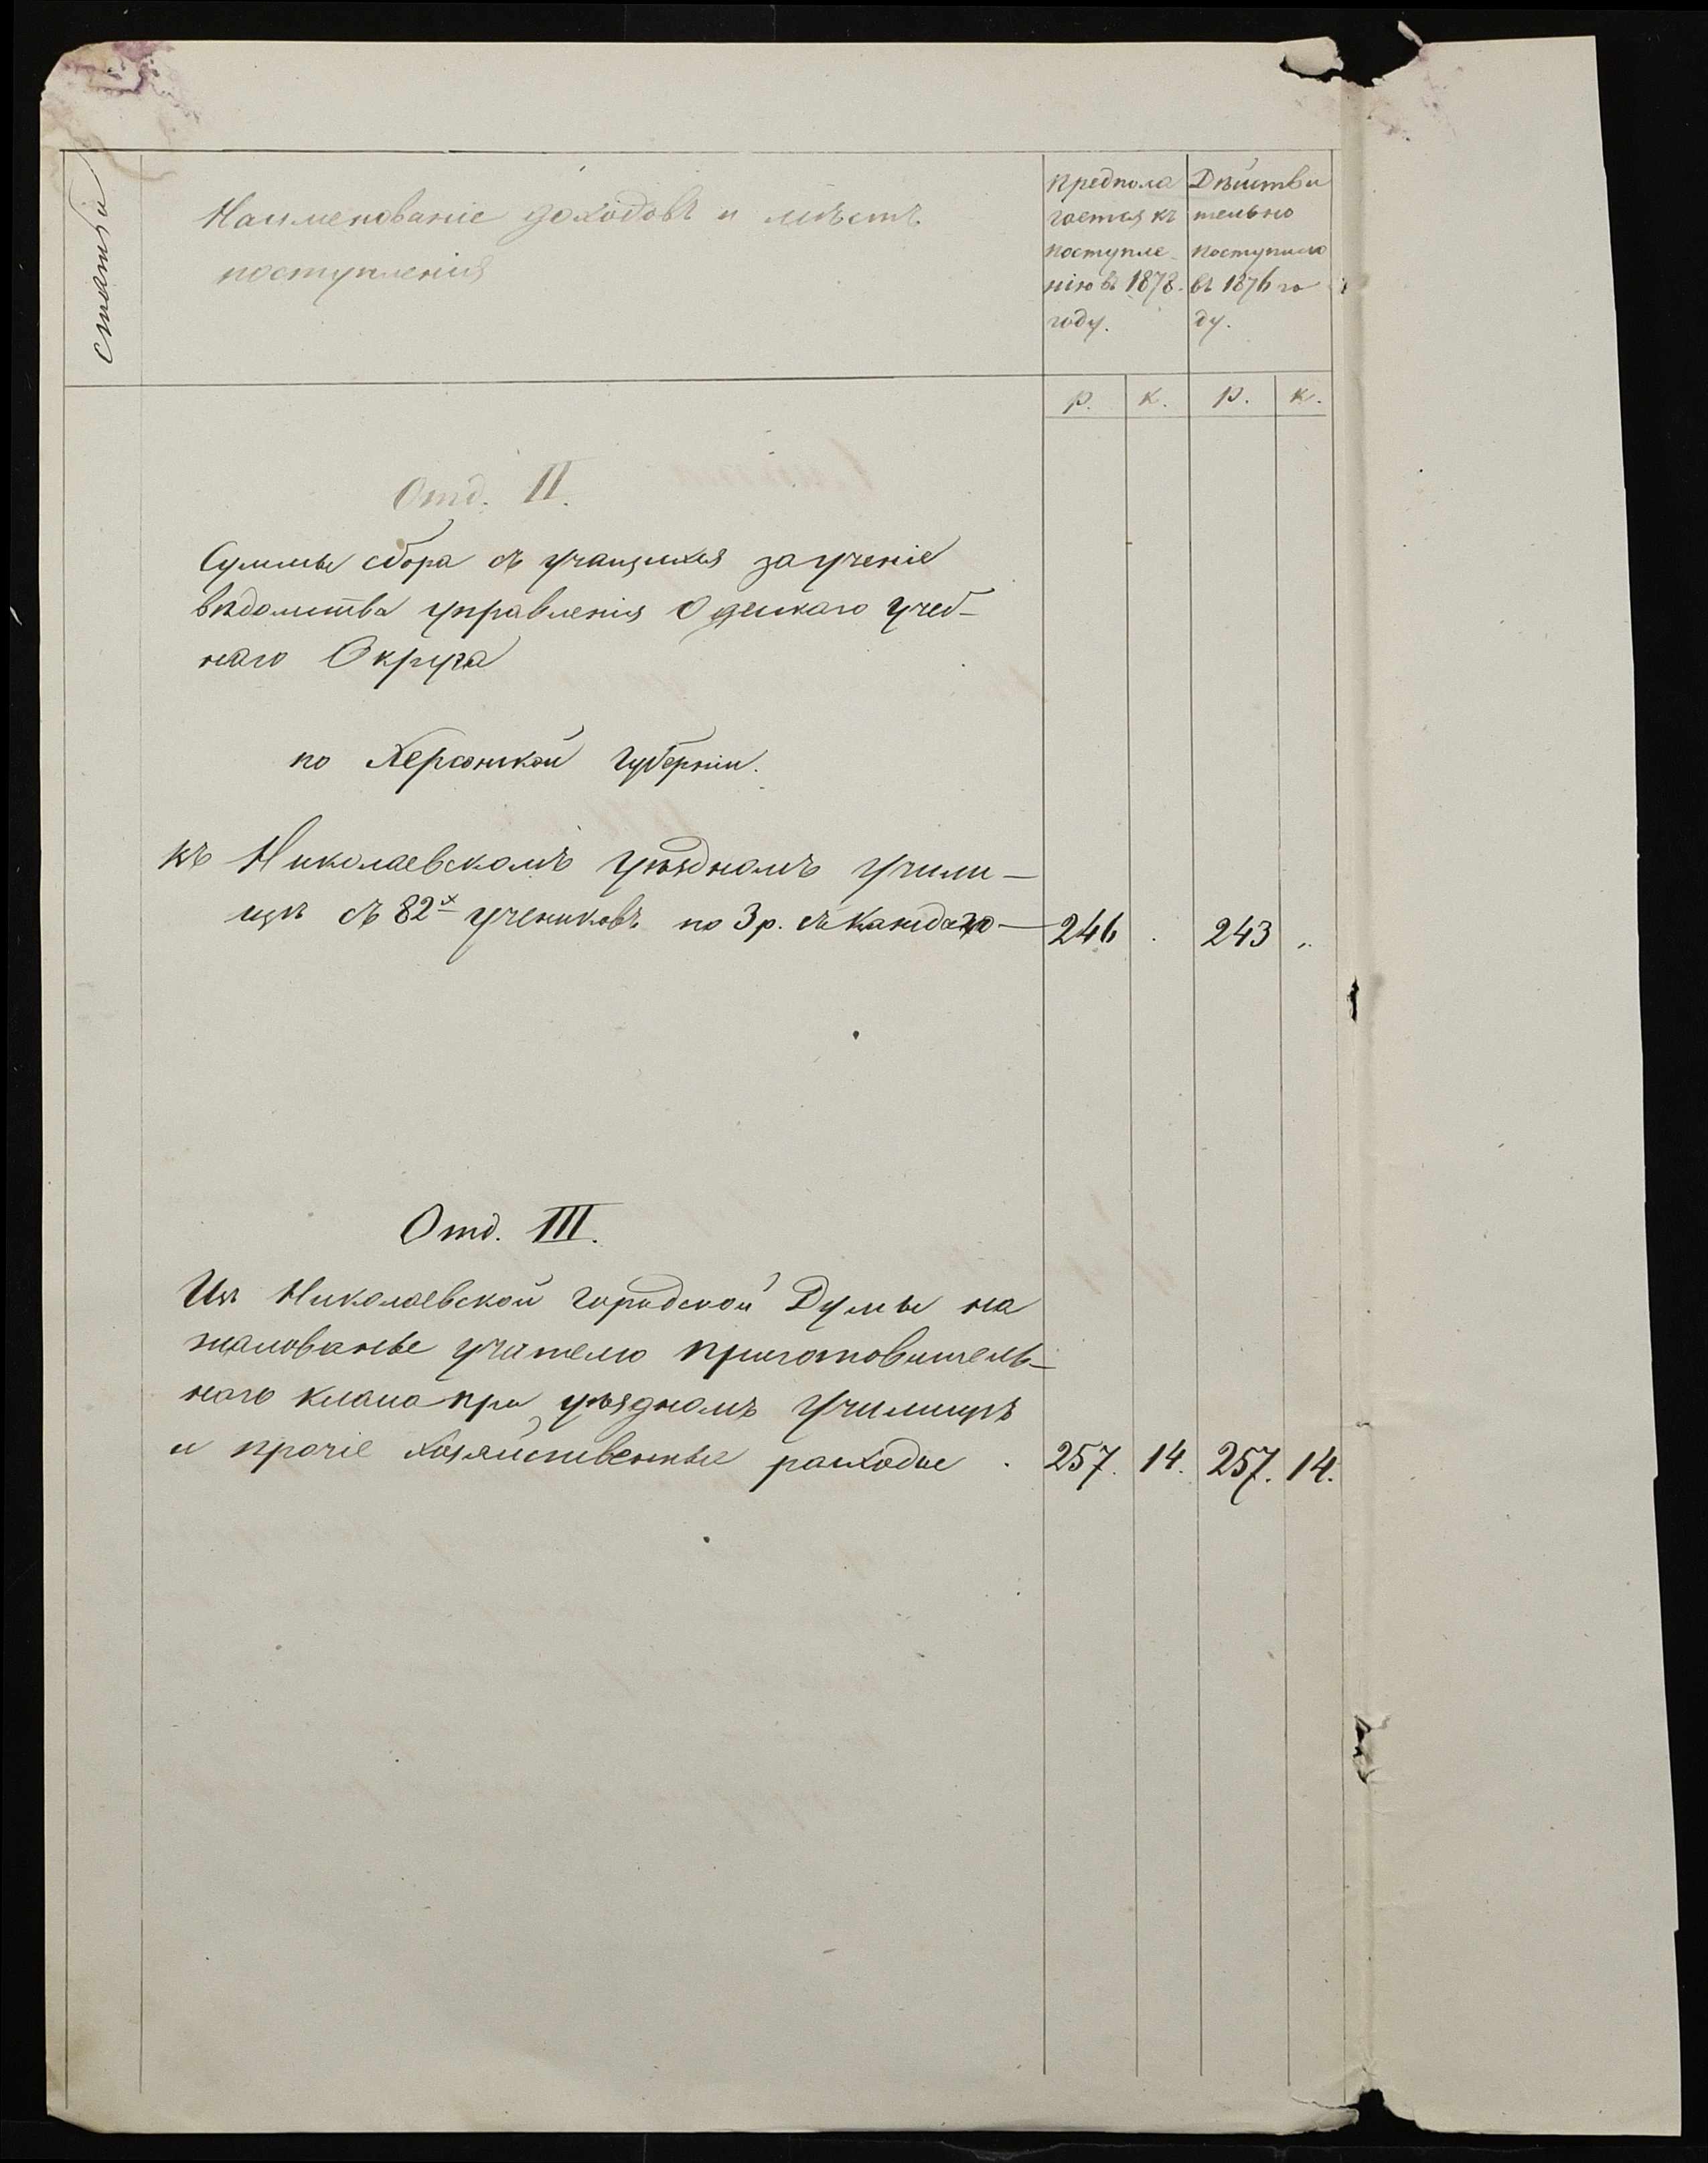 Статьи
Наименованіе доходовъ и мѣстъ
поступленія
Предпола
гается къ
поступле-
нію въ 1878.
году.
Дѣйстви
тельно
поступило
въ 1876 го
ду.
р. к. р. к.
Отд. II.
Суммы сбора съ учащихся за ученіе
вѣдомства управленія Одескаго Учеб-
наго Округа
по Херсонской Губерніи.
въ Николаевскомъ Уѣздномъ Учили-
щѣ съ 82х учениковъ по 3 р. съ каждаго — 246 . 243 „
Отд. III.
Изъ Николаевской Городской Думы на
жалованье учителю приготовитель-
наго класа при уѣздномъ Училищѣ
и прочіе хозяйственные расходы . 257. 14. 257. 14.